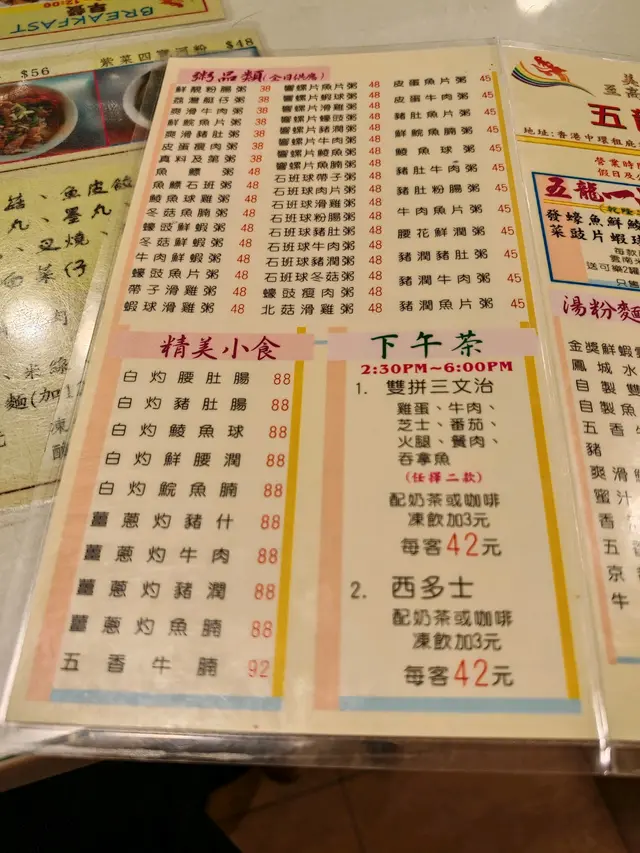 BREAKFAST
早餐
12:00
$56
紫菜四寶河粉 $48
粥品類(全日供應)
鮮靚粉腸粥 38
荔灣艇仔粥 38
爽滑牛肉粥 38
鮮鯇魚片粥 38
爽滑豬肚粥 38
皮蛋瘦肉粥 38
真料及第粥 38
魚鰾粥 48
魚鰾石班粥 48
鯪魚球雞粥 48
冬菇魚腩粥 48
蠔豉鮮蝦粥 48
冬菇鮮蝦粥 48
牛肉鮮蝦粥 48
蠔豉魚片粥 48
帶子滑雞粥 48
蝦球滑雞粥 48
響螺片魚片粥 48
響螺片蝦球粥 48
響螺片滑雞粥 48
響螺片蠔豉粥 48
響螺片豬潤粥 48
響螺片牛肉粥 48
響螺片魚腩粥 48
石班球帶子粥 48
石班球肉片粥 48
石班球滑雞粥 48
石班球粉腸粥 48
石班球牛肉粥 48
石班球冬菇粥 48
蠔豉瘦肉粥 48
北菇滑雞粥 48
皮蛋魚片粥 45
皮蛋牛肉粥 45
豬肚魚片粥 45
鮮鯇魚腩粥 45
鯪魚球粥 45
豬肚牛肉粥 45
豬肚粉腸粥 45
牛肉魚片粥 45
腰花鮮潤粥 45
豬潤豬肚粥 45
豬潤牛肉粥 45
豬潤魚片粥 45
精美小食
白灼腰肚腸 88
白灼豬肚腸 88
白灼鯪魚球 88
白灼鮮腰潤 88
白灼鯇魚腩 88
薑蔥灼豬什 88
薑蔥灼牛肉 88
薑蔥灼豬潤 88
薑蔥灼魚腩 88
五香牛腩 92
下午茶
2:30PM~6:00PM
1. 雙拼三文治
雞蛋、牛肉、
芝士、番茄、
火腿、餐肉、
吞拿魚
(任擇二款)
配奶茶或咖啡
凍飲加3元
每客42元
2. 西多士
配奶茶或咖啡
凍飲加3元
每客42元
五
地址:香港中環租庇
營業時
假日及公
五龍一
發蠔魚鮮鯪
菜豉片蝦球
每款
雲南米
送可樂2罐
只售
湯粉麵
金獎鮮蝦
鳳城水
自製魚
自製魚
五香牛
豬
爽滑鯪
蜜汁
香
五
京都
牛
菇、魚皮餃
丸、墨丸
、叉燒、
菜仔
肉
、米線
麵(加1
元
凍